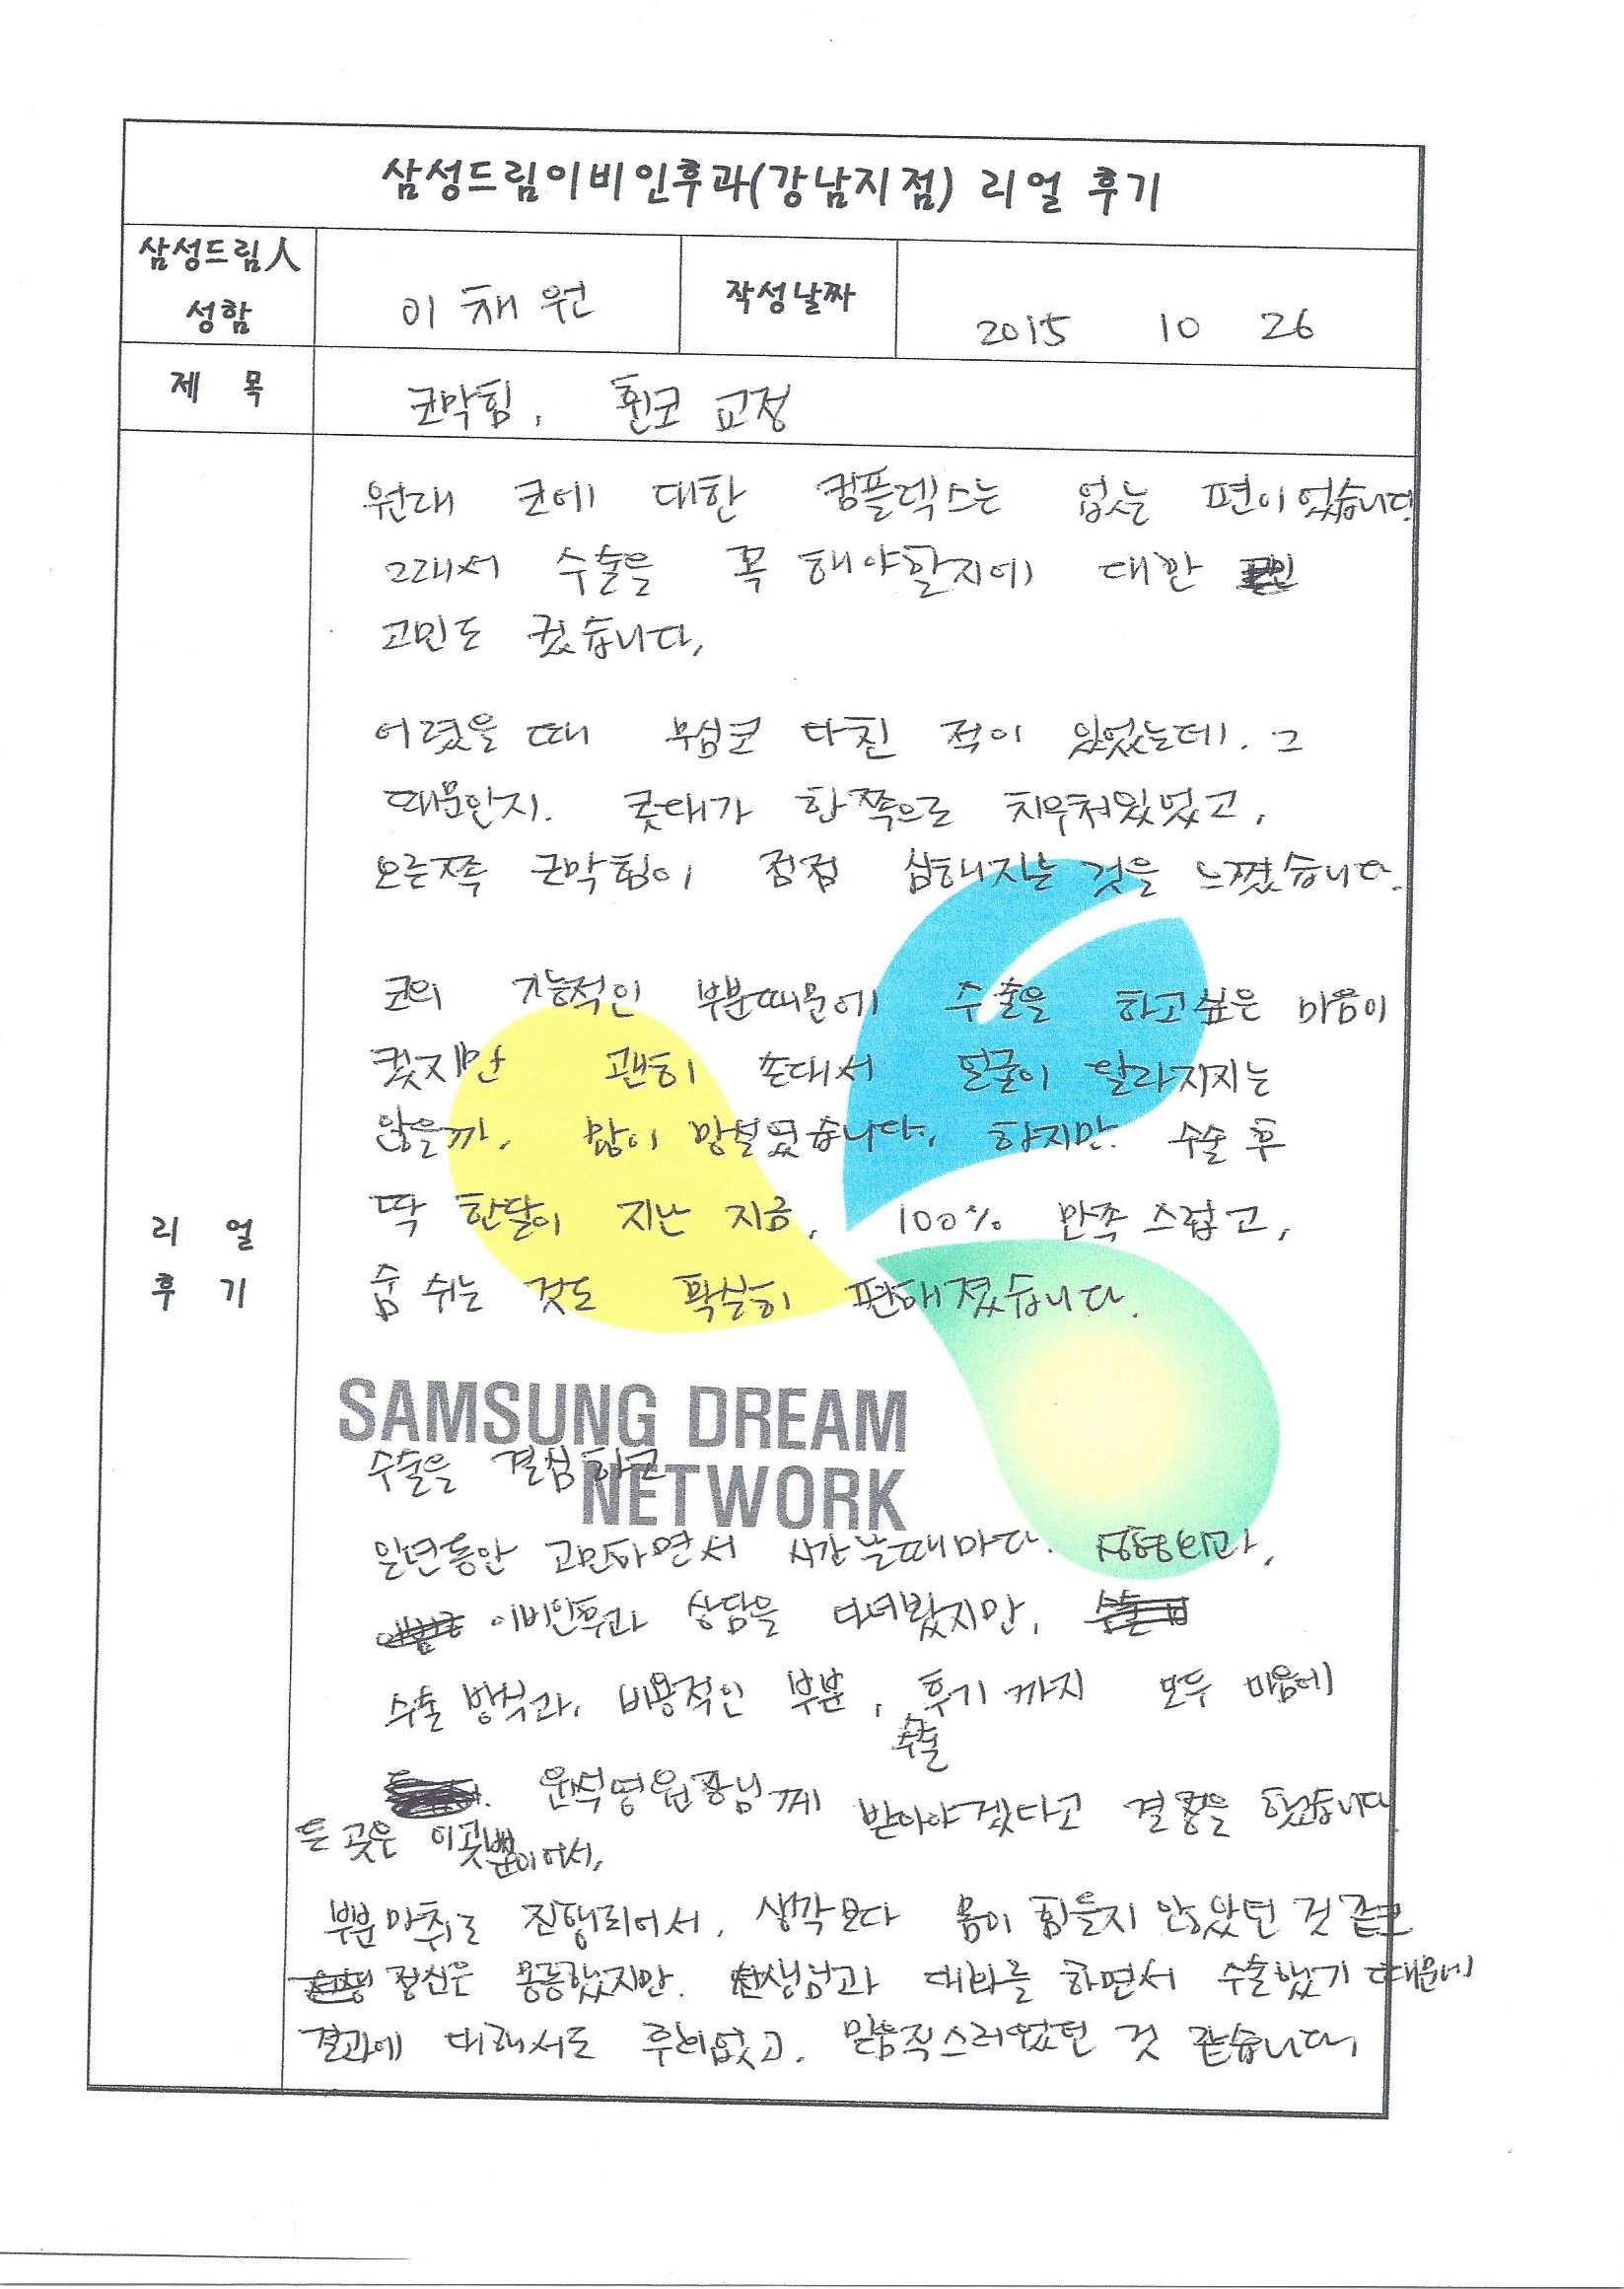 삼성드림이비인후과(강남지점) 리얼 후기
삼성드림人
성함
이채원
작성날짜
2015 10 26
제 목
코막힘, 휜코 교정
리 얼
후 기
원래 코에 대한 컴플렉스는 없는 편이었습니다
그래서 수술을 꼭 해야할지에 대한
고민도 컸습니다.
어렸을 때 무심코 다친 적이 있었는데. 그
때문인지. 콧대가 한쪽으로 치우쳐있었고,
오른쪽 코막힘이 점점 심해지는 것을 느꼈습니다.
코의 기능적인 부분때문에 수술을 하고싶은 마음이
컸지만 괜히 손대서 얼굴이 달라지지는
않을까, 많이 망설였습니다. 하지만. 수술 후
딱 한달이 지난 지금, 100% 만족스럽고,
숨 쉬는 것도 확실히 편해졌습니다.
SAMSUNG DREAM
NETWORK
수술을 결심하고
일년동안 고민하면서 시간날때마다. 성형외과,
이비인후과 상담을 다녀봤지만,
수술 방식과, 비용적인 부분, 후기까지 모두 마음에
든 곳은 이곳뿐이어서,
윤석영원장님께 수술 받아야겠다고 결정을 했습니다
부분마취로 진행되어서, 생각보다 몸이 힘들지 않았던 것 같고
정신은 몽롱했지만. 선생님과 대화를 하면서 수술했기 때문에
결과에 대해서도 후회없고, 믿음직스러웠던 것 같습니다.